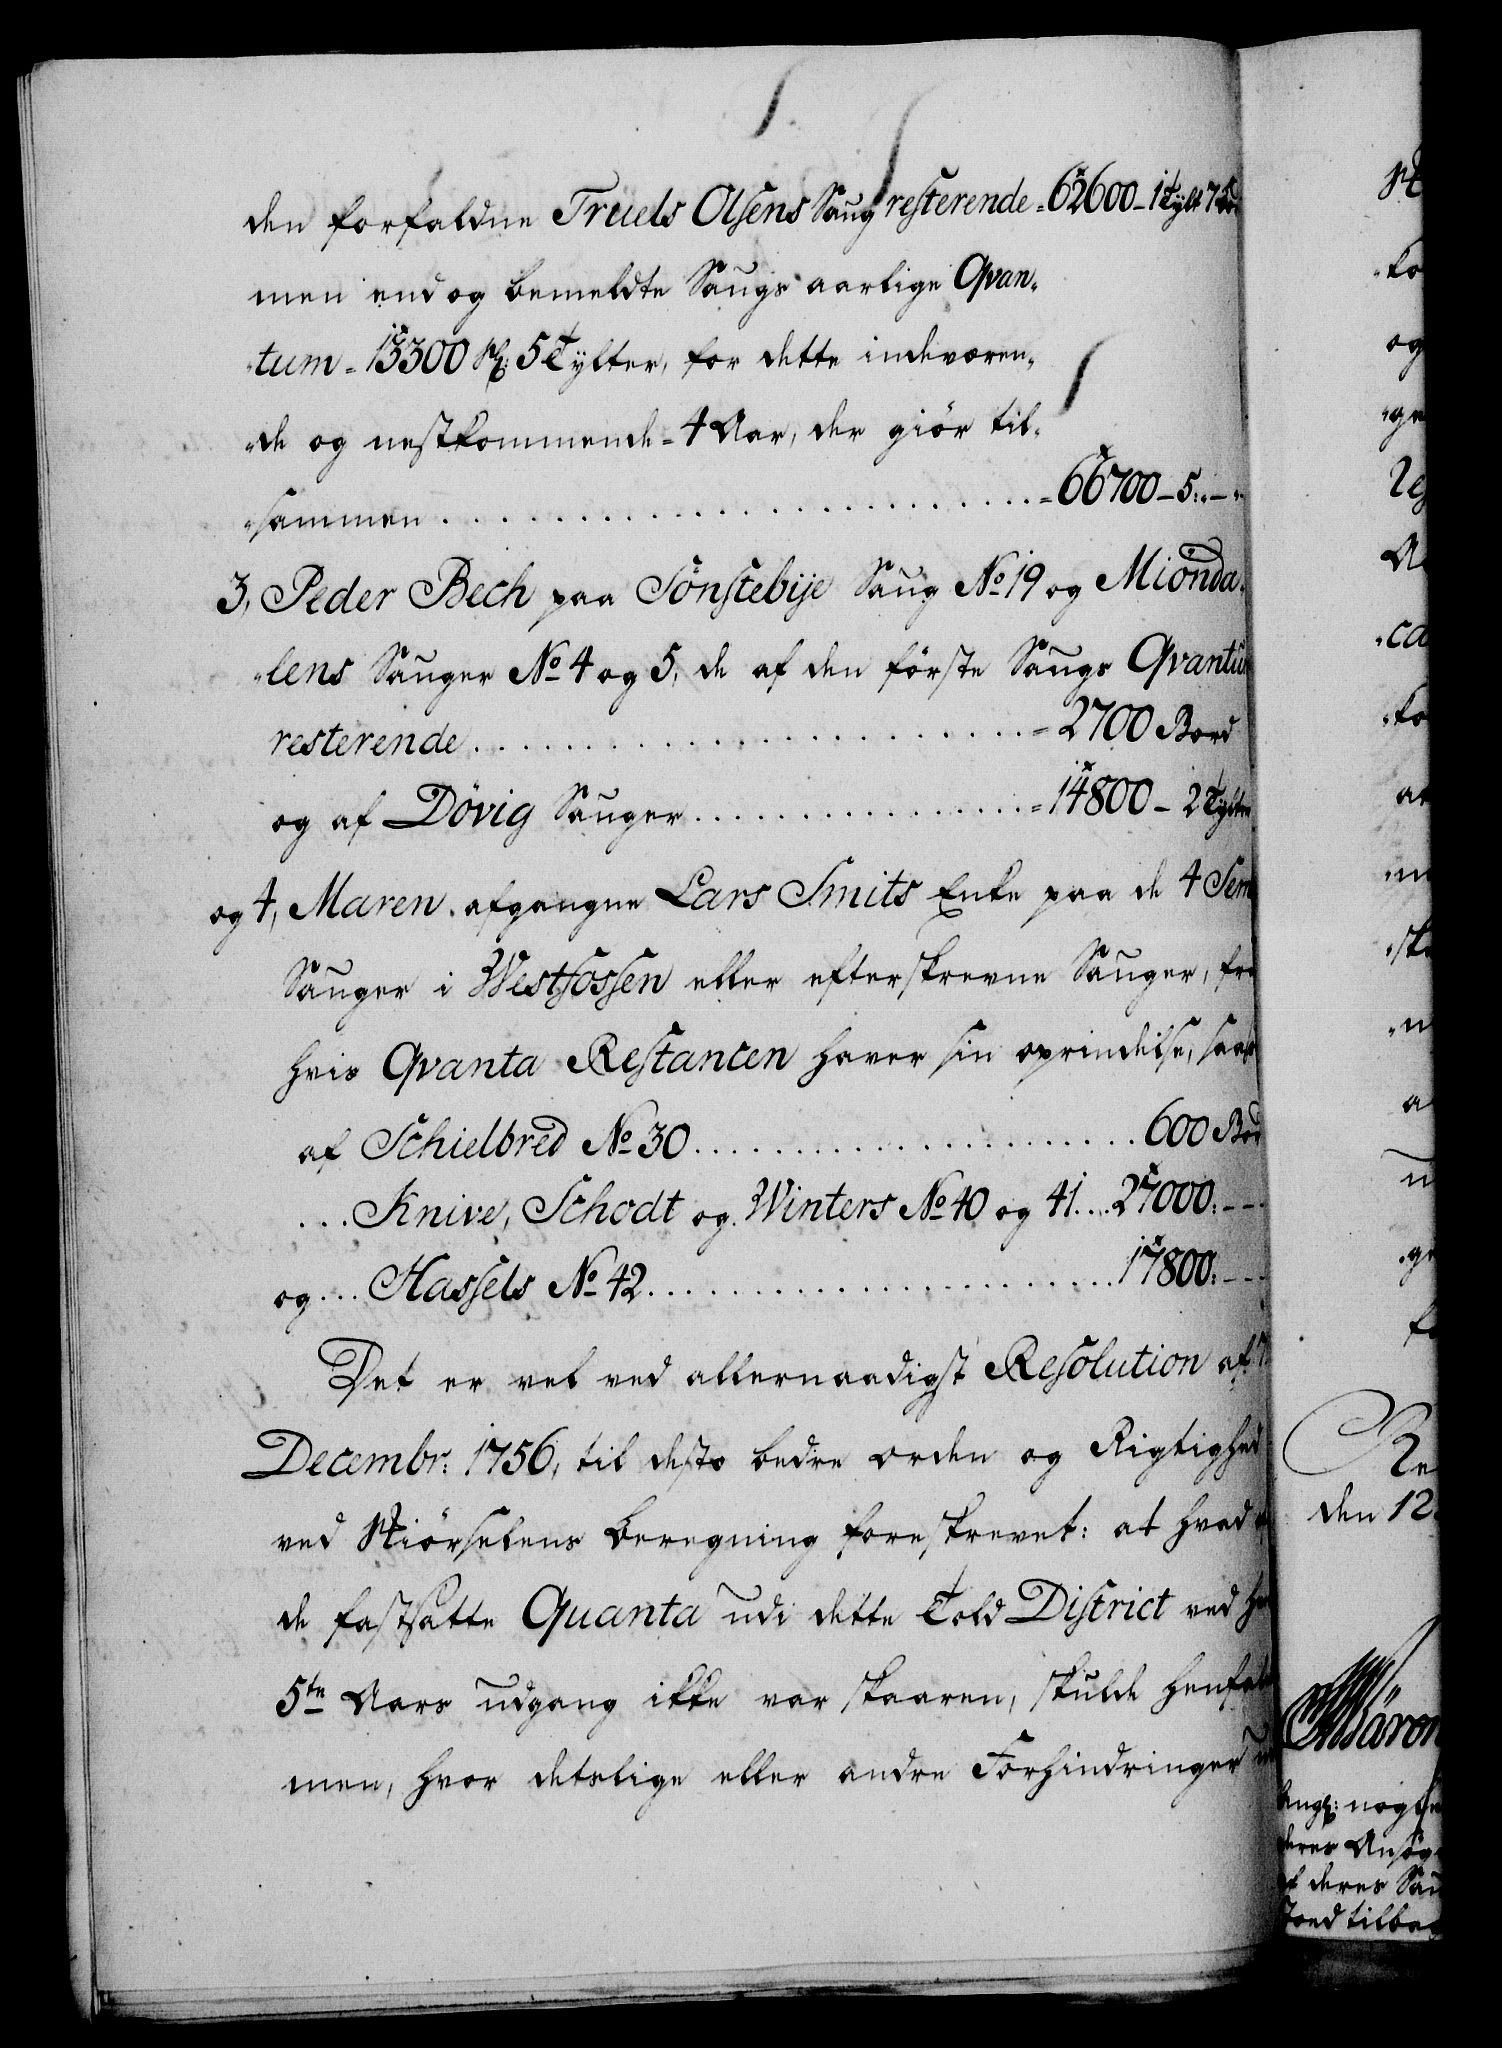 den forfaldne Truels Olsens Saug resterende = 62600 - 1 Tylt 7
men endog bemeldte Saugs aarlige Qvan-
tum = 13300 st: 5 Tylter, for dette indeværen-
de og nestkommende = 4 Aar, der giör til-
sammen . . . . . . . . . . . . . . . . . = 66700 - 5: -
3, Peder Bech paa Sönstebÿe Saug No 19 og Mionda-
lens Sauger No 4 og 5, de af den förste Saugs Qvantu
resterende . . . . . . . . . . . . . . . . = 2700 Bord
og af Dövig Sauger . . . . . . . . . . . = 14800 - 2 Tylter
og 4, Maren afgangne Lars Smits Enke paa de 4 Sem
Sauger i Westfossen eller efterskrevne Sauger, fra
hvis Qvanta Restancen haver sin oprindelse, saa
af Schielbred No 30 . . . . . . . . . . . . . . 600 Bor
. . . Knive, Schodt og Winters No 40 og 41 . . . 27000: - - -
og . . . Hassels No 42 . . . . . . . . . . . . . . 17800: - - -
Det er vel ved allernaadigst Resolution af 7
Decembr: 1756, til desto bedre orden og Rigtighed
ved Skiörselens beregning foreskrevet: at hvad
de fastsatte Quanta udi dette Told District ved
5te Aars udgang ikke var skaaren, skulde henfal
men, hvor detslige eller andre Forhindringer
ko
og
ge
ca
ko
ar
m
ske
a
u
ge
Re
den 12
nogle
deres Ansög
af deres Sau
Toed tilba